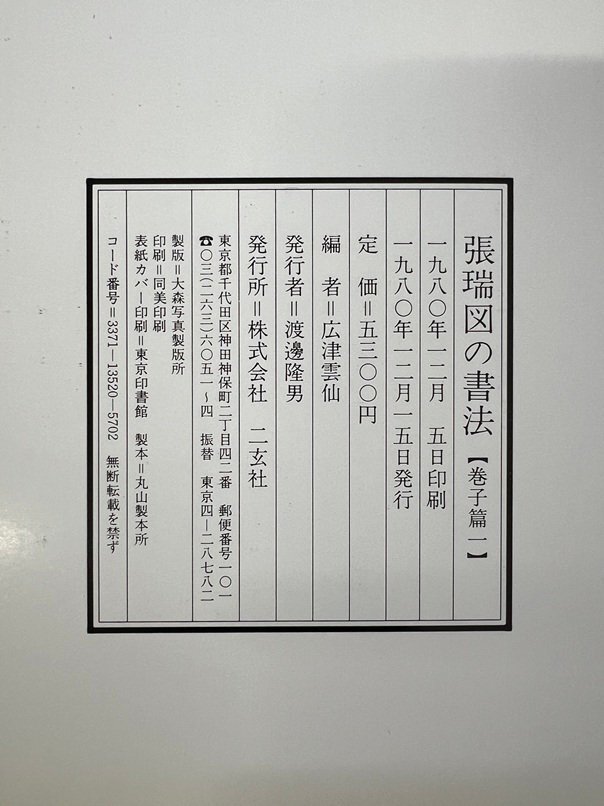 張瑞図の書法【巻子篇一】
一九八〇年一二月　五日印刷
一九八〇年一二月一五日発行
定　価＝五三〇〇円
編　者＝広津雲仙
発行者＝渡邊隆男
発行所＝株式会社　二玄社
東京都千代田区神田神保町二丁目四二番　郵便番号一〇一
☎〇三(二六三)六〇五一～四　振替　東京四—二八七八二
製版＝大森写真製版所
印刷＝同美印刷
表紙カバー印刷＝東京印書館　製本＝丸山製本所
コード番号＝3371—13520—5702　無断転載を禁ず